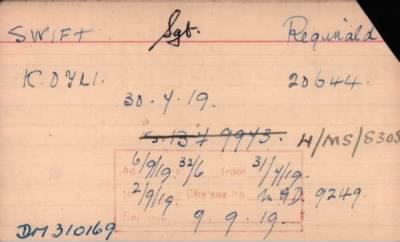 SWIFT Sgt. Reginald
K.O.Y.L.I. 20644.
30.7.19.
9943. H/MS/8308
6/9/19. 32/6 from 31/7/19.
2/9/19. Chelsea No. 9249.
9.9.19.
DM310169